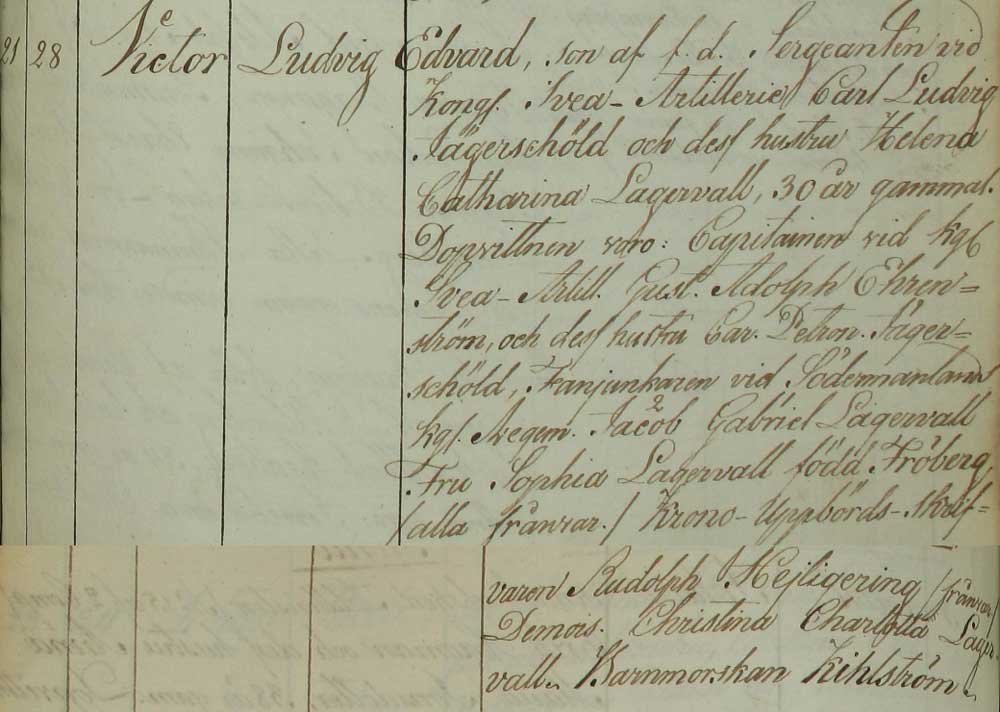 21 28 Victor Ludvig Edvard, son af f.d. Sergeanten vid
Kongl. Svea-Artillerie Carl Ludvig
Jägerschöld och dess hustru Helena
Catharina Lagervall, 30 år gammal.
Dopvittnen voro: Capitainen vid kgl
Svea-Artill. Gust. Adolph Ehren=
ström, och dess hustru Car. Petron. Jäger=
schöld, Fanjunkaren vid Södermanlands
kgl. Regem. Jacob Gabriel Lagervall
Fru Sophia Lagervall född Fröberg,
/alla frånvar./ Krono-Uppbörds-Skrif=
varen Rudolph Hejligering /frånvar/
Demois. Christina Charlotta Lager-
vall. Barnmorskan Kihlström.